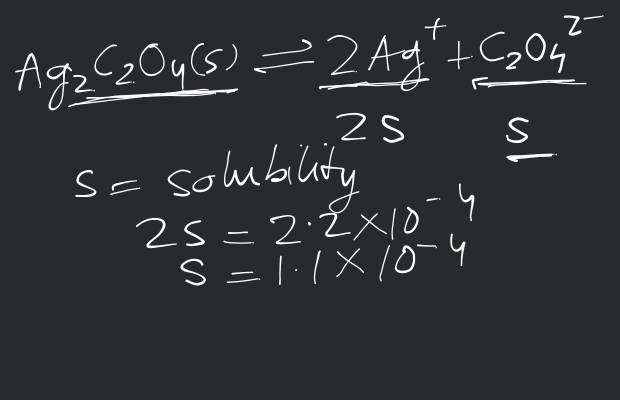 Ag₂C₂O₄(s) ⇌ 2Ag⁺ + C₂O₄²⁻
2S S
S = solubility
2S = 2.2×10⁻⁴
S = 1.1×10⁻⁴